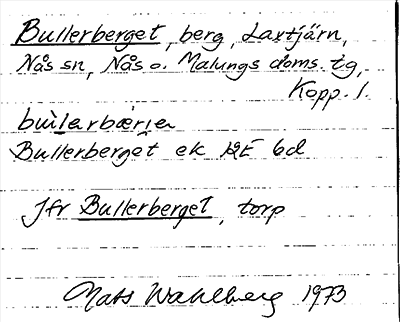 Bullerberget, berg, Laxtjärn,
Nås sn, Nås o. Malungs doms. tg,
Kopp. l.
bùlarbærja
Bullerberget ek 12E 6d
Jfr Bullerberget, torp
Mats Wahlberg 1973